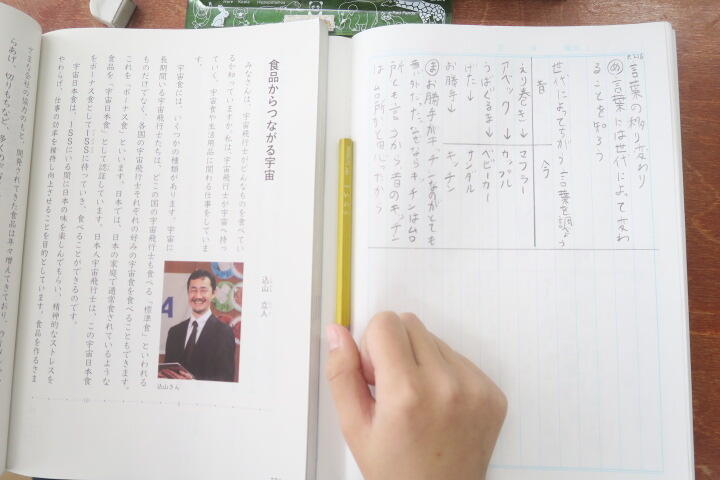 Koala
Hippopotamus
P.218
言葉の移り変わり
め 言葉には世代によって変わ
ることを知ろう
世代によってちがう言葉を調べよう
昔
今
えり巻き→マフラー
アベック→カップル
うばぐるま→ベビーカー
げた→サンダル
お勝手→キッチン
ま お勝手がキッチンなのがとても
意外だった。なぜならキッチンは台
所とも言うから昔のキッチン
は台所かと思ったから
食品からつながる宇宙
込山 立人
みなさんは、宇宙飛行士がどんなものを食べてい
るか知っていますか。私は、宇宙飛行士が宇宙へ持っ
ていく、宇宙食や生活用品に関わる仕事をしていま
宇宙食には、いくつかの種類があります。宇宙に
長期間いる宇宙飛行士たちは、どこの国の宇宙飛行士も食べる「標準食」といわれる
ものだけでなく、各国の宇宙飛行士それぞれの好みの宇宙食を食べることもできます。
これを「ボーナス食」といいます。日本では、日本の家庭で通常食されているような
食品を、「宇宙日本食」として認証しています。日本人宇宙飛行士は、この宇宙日本食
をボーナス食としてISSに持っていき、食べることができるのです。
宇宙日本食は、ISSにいる間に日本の味を楽しんでもらい、精神的なストレスを
やわらげ、仕事の効率を維持し向上させることを目的としています。食品を作るさま
ざまな会社の協力のもと、開発されてきた食品は年々増えてきており、
らあげ、切りもちなど、多くの
込山さん